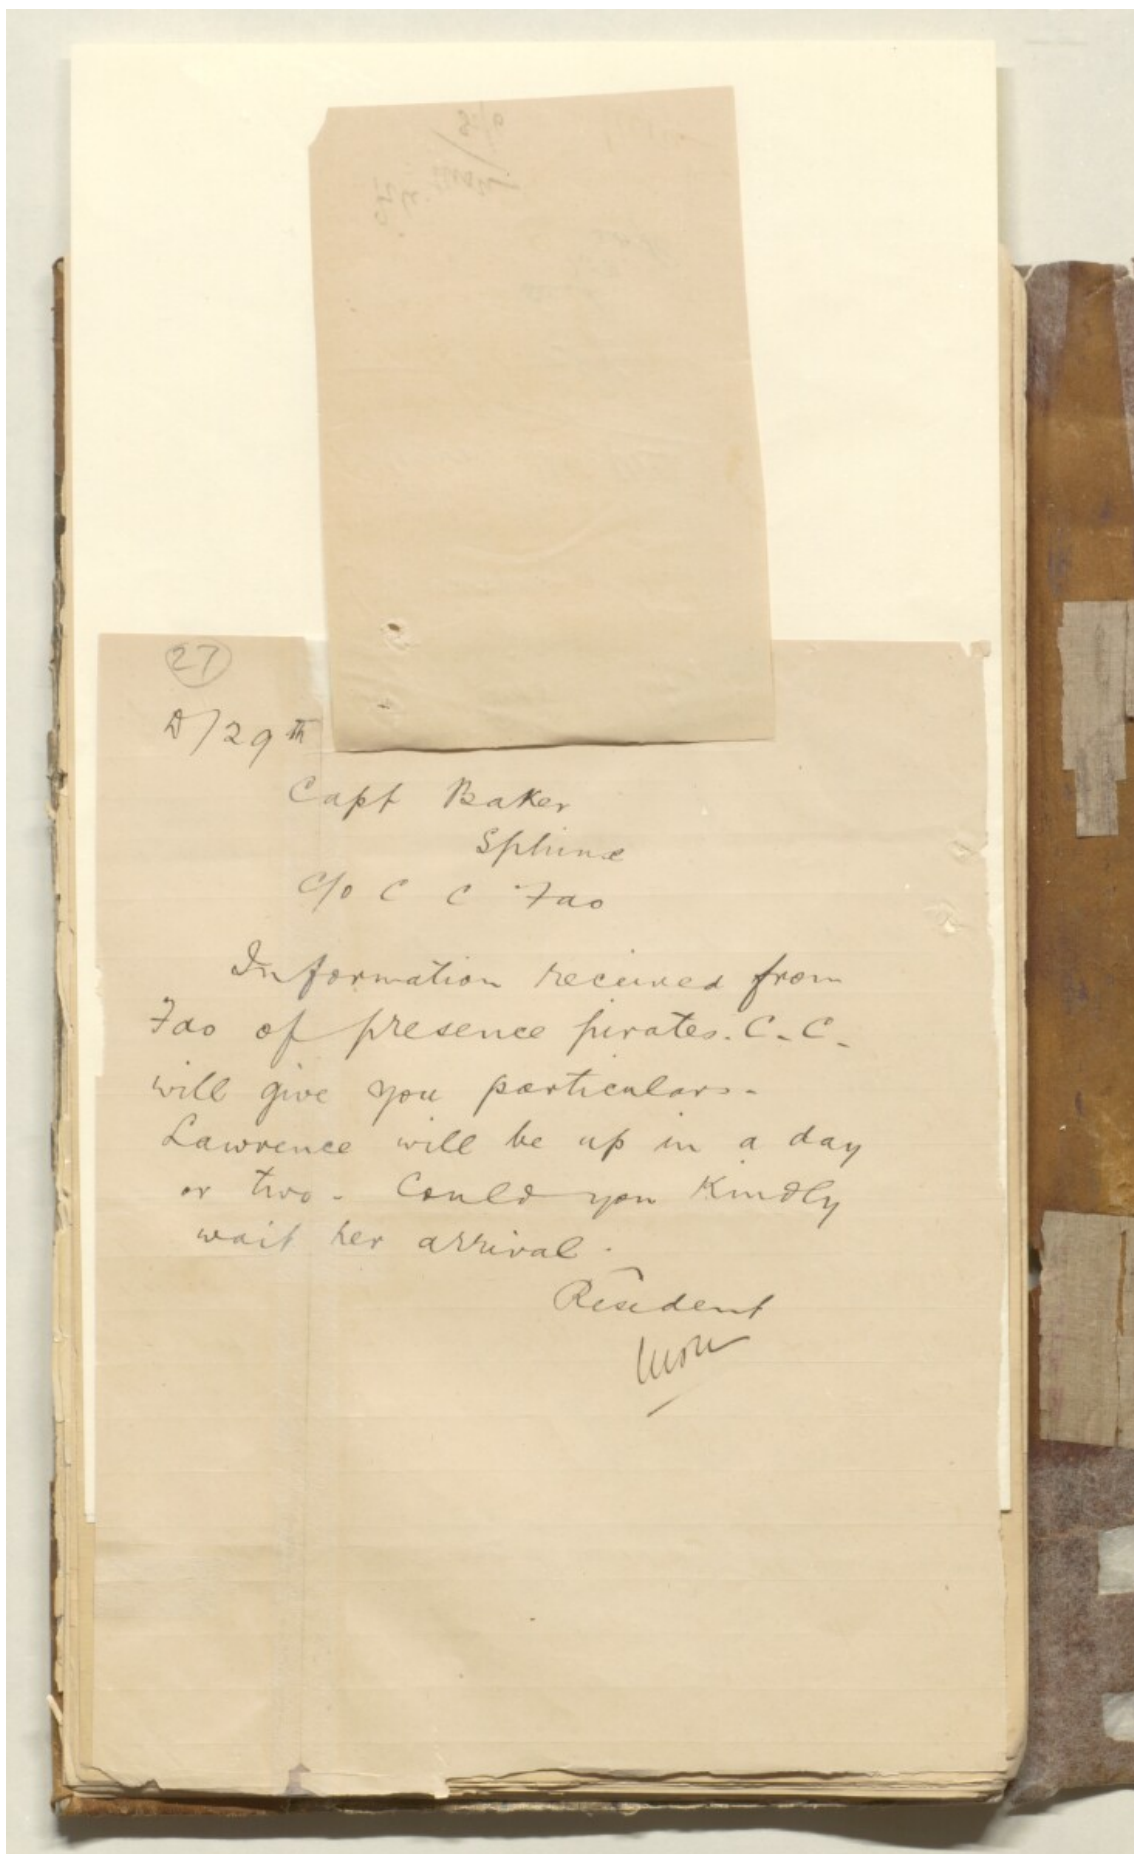 27
D/29th
Capt Baker
Sphinx
C/o C C Fao
Information received from
Fao of presence pirates. C.C.
will give you particulars.
Lawrence will be up in a day
or two. Could you Kindly
wait her arrival.
Resident